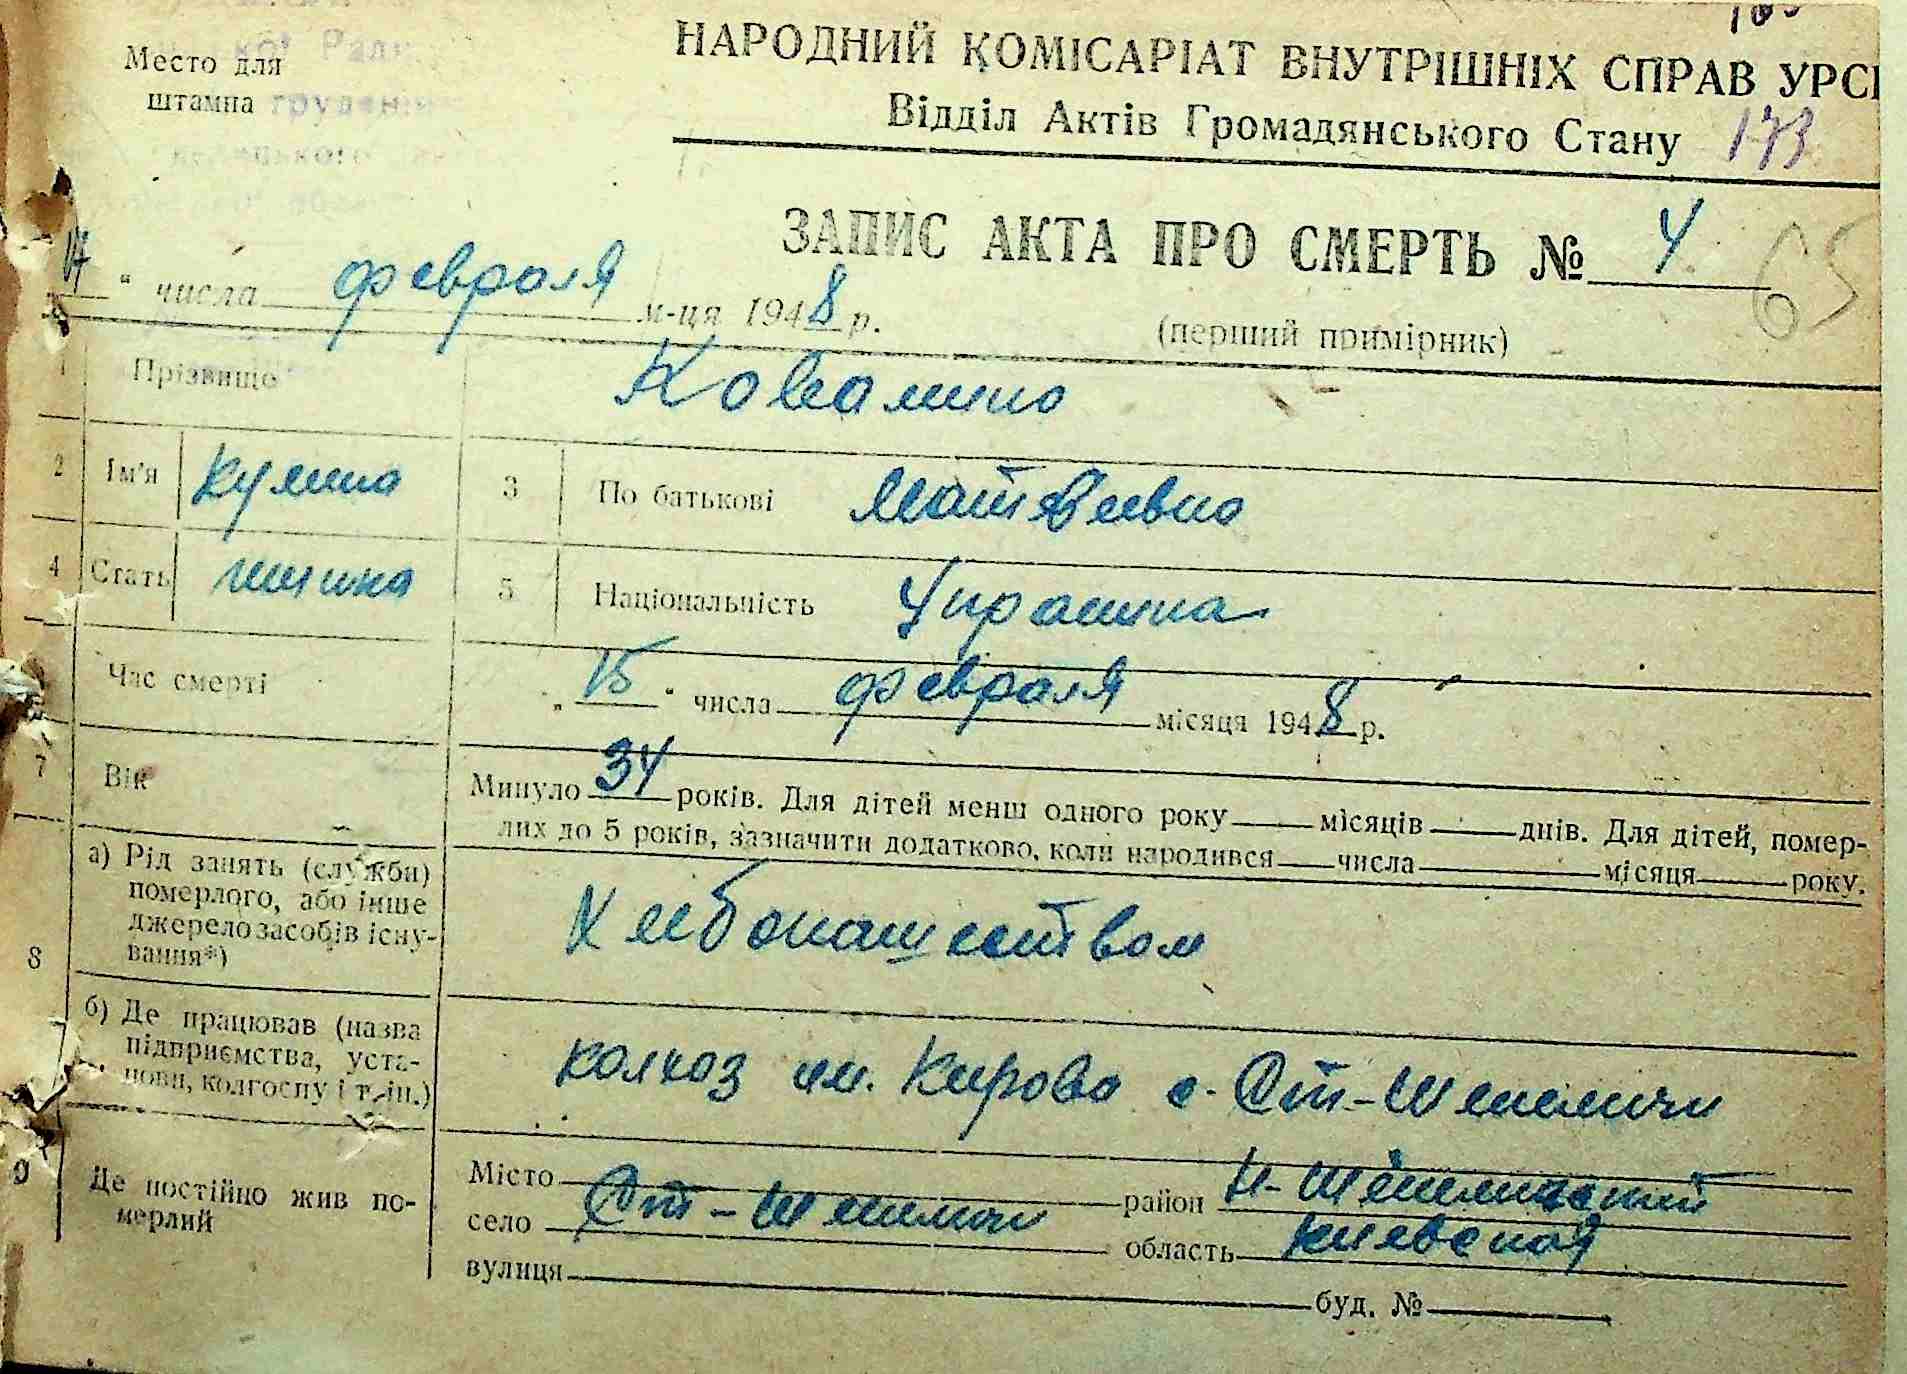 Место для
штампа
НАРОДНИЙ КОМІСАРІАТ ВНУТРІШНІХ СПРАВ УРСР
Відділ Актів Громадянського Стану 173
ЗАПИС АКТА ПРО СМЕРТЬ № 4
65
17 " числа февраля м-ця 1948 р.
(перший примірник)
1 Прізвище
2 Ім'я Кулина 3 По батькові Матвеевна
4 Стать 5 Національність Украинка
Час смерті „ 15 " числа февраля місяця 1948 р.
7 Вік Минуло 34 років. Для дітей менш одного року місяців днів. Для дітей, помер-
лих до 5 років, зазначити додатково, коли народився числа місяця року.
8 а) Рід занять (служби)
померлого, або інше
джерело засобів існу-
вання*)
Хлебопашеством
б) Де працював (назва
підприємства, уста-
нови, колгоспу і т. ін.)
колхоз им. Кирова с. Ст-Шепеличи
9 Де постійно жив по-
мерлий
Місто район Н-Шепеличский
село Ст-Шепеличи область Киевской
вулиця буд. №